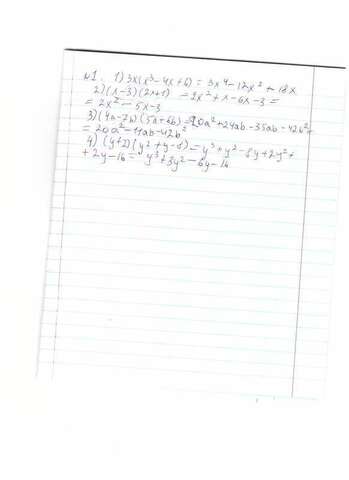 №1. 1) 3x(x³-4x+6) = 3x⁴-12x²+18x
2) (x-3)(2x+1) = 2x²+x-6x-3 =
= 2x²-5x-3
3) (4a-7b)(5a+6b) = 20a²+24ab-35ab-42b² =
= 20a²-11ab-42b²
4) (y+2)(y²+y-8) = y³+y²-8y+2y²+
+2y-16 = y³+3y²-6y-16